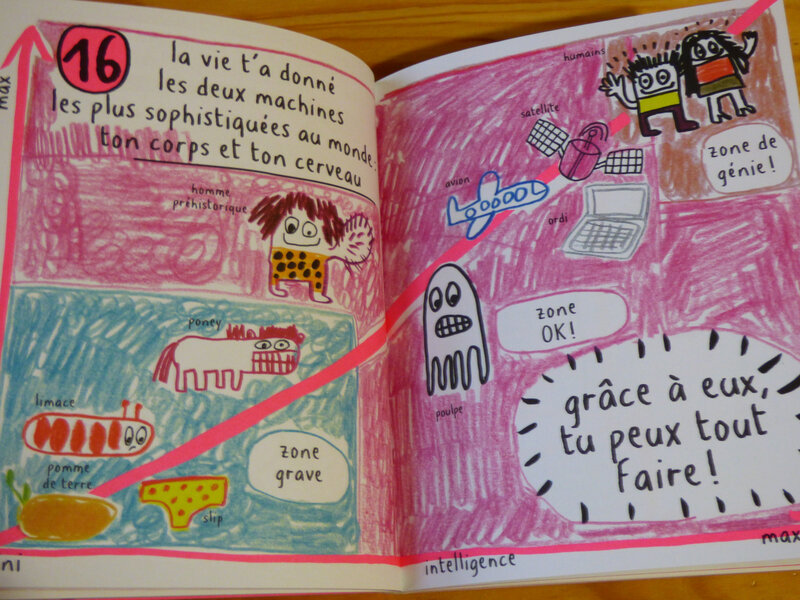 max
16
la vie t'a donné
les deux machines
les plus sophistiquées au monde :
ton corps et ton cerveau
homme
préhistorique
poney
limace
pomme
de terre
slip
zone
grave
ni
humains
satellite
zone de
génie !
avion
ordi
zone
OK !
poulpe
grâce à eux,
tu peux tout
faire !
intelligence
max